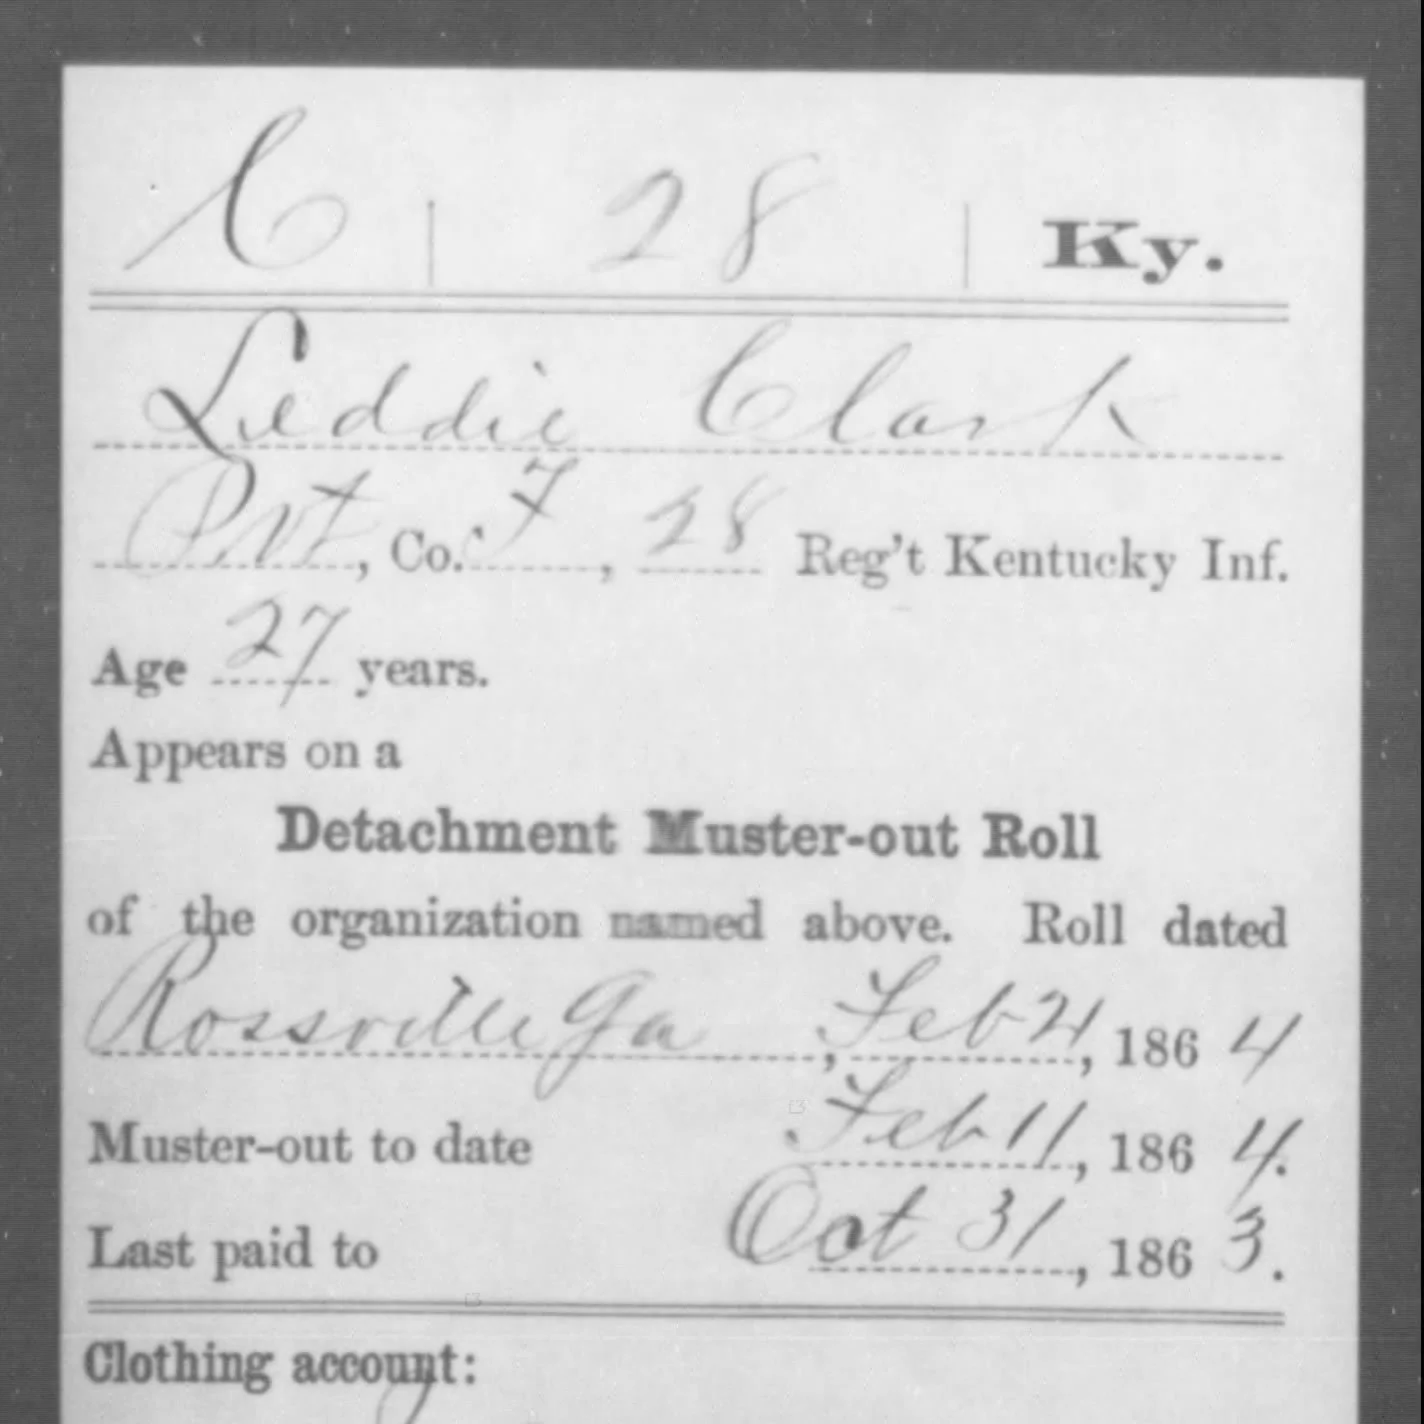 C | 28 | Ky.
Leddie Clark
Pvt, Co. F, 28 Reg't Kentucky Inf.
Age 27 years.
Appears on a
Detachment Muster-out Roll
of the organization named above. Roll dated
Rossville Ga, Feb 21, 1864
Muster-out to date Feb 11, 1864.
Last paid to Oct 31, 1863.
Clothing account: